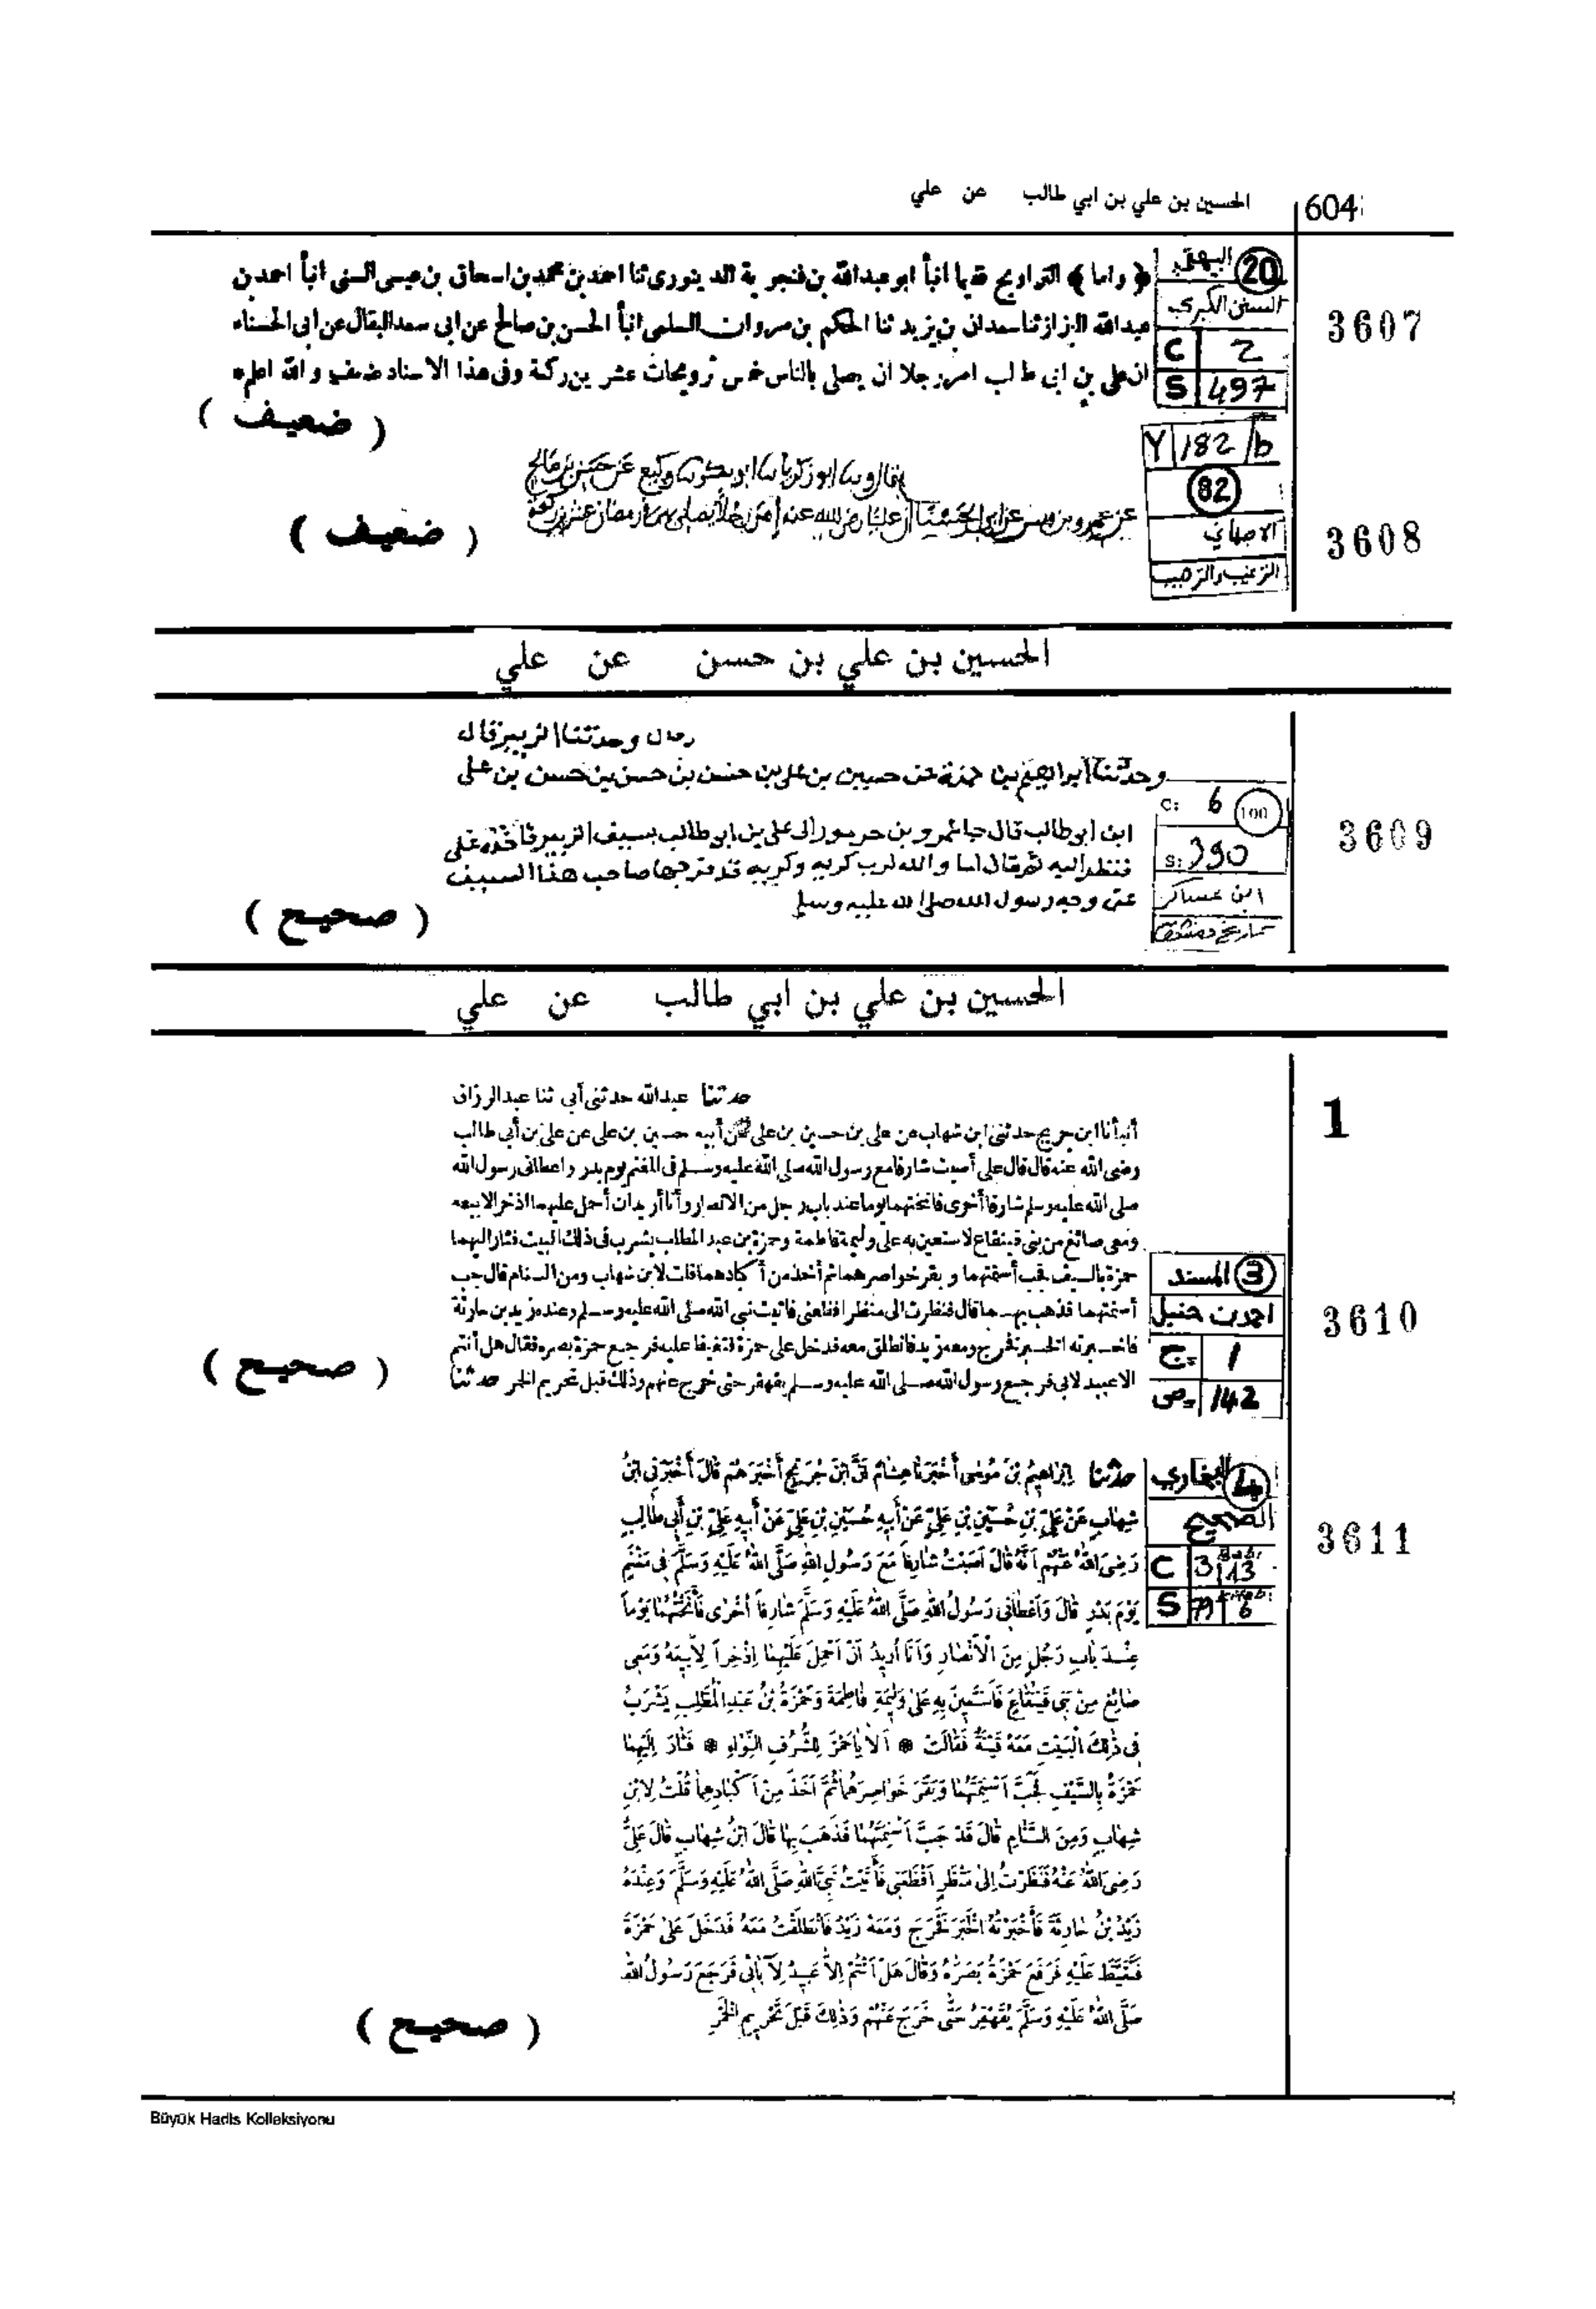 604 الحسين بن علي بن ابي طالب عن علي
3607
البيهقي 20
السنن الكبرى
C 2
S 497
﴿ واما ﴾ التراويح ففيما انبأ ابو عبدالله بن فنجوية الدينورى ثنا احمد بن محمد بن اسحاق بن عيسى السنى انبأ احمد بن
عبدالله البزاز ثنا سعدان بن يزيد ثنا الحكم بن مروان السلمى انبأ الحسن بن صالح عن ابى سعد البقال عن ابى الحسناء
ان على بن ابى طالب امر رجلا ان يصلى بالناس خمس ترويحات عشرين ركعة وفى هذا الاسناد ضعف والله اعلم
( ضعيف )
3608
Y 182/b
82
الاصبهاني
الترغيب والترهيب
ابو زكريا وكيع عن حسن بن صالح
عن عمرو بن قيس عن ابي الحسناء أن عليا رضي الله عنه أمر رجلا يصلي رمضان عشرين ركعة
( ضعيف )
الحسين بن علي بن حسن عن علي
3609
C: 6 100
S: 390
ابن عساكر
تاريخ دمشق
وحدثنا الزبير قال
وحدثنا ابراهيم بن حمزة عن حسين بن على بن حسن بن حسن بن حسن بن على
ابن ابو طالب قال جا عمرو بن جرموز الى على بن ابو طالب بسيف الزبير فاخذه على
فنظر اليه ثم قال اما والله لرب كربه وكربه قد فرجها صاحب هذا السيف
عن وجه رسول الله صلى الله عليه وسلم
( صحيح )
الحسين بن علي بن ابي طالب عن علي
1
3610
المسند 3
احمد بن حنبل
ج= 1
ص= 142
حدثنا عبدالله حدثنى أبى ثنا عبدالرزاق
أنبأنا ابن جريج حدثنى ابن شهاب عن على بن حسين بن على عن أبيه حسين بن على عن على بن أبى طالب
رضى الله عنه قال قال على أصبت شارفا مع رسول الله صلى الله عليه وسلم فى المغنم يوم بدر وأعطانى رسول الله
صلى الله عليه وسلم شارفا أخرى فانختهما يوما عند باب رجل من الانصار وأنا أريد ان أحمل عليهما اذخرا لابيعه
ومعى صائغ من بنى قينقاع لاستعين به على وليمة فاطمة وحمزة بن عبد المطلب يشرب فى ذلك البيت فثار اليهما
حمزة بالسيف فجب أسنمتهما وبقر خواصرهما ثم أخذ من أكبادهما قلت لابن شهاب ومن السنام قال جب
أسنمتهما فذهب بهما قال فنظرت الى منظر افظعنى فاتيت نبى الله صلى الله عليه وسلم وعنده زيد بن حارثة
فاخبرته الخبر فخرج ومعه زيد فانطلق معه فدخل على حمزة فتغيظ عليه فرجع حمزة بصره فقال هل أنتم
الا عبيد لابى فرجع رسول الله صلى الله عليه وسلم يقهقر حتى خرج عنهم وذلك قبل تحريم الخمر حدثنا
( صحيح )
3611
البخاري 4
الصحيح
C 3 Bab: 13
S 79 kitab: 6
حدثنا إِبْرَاهِيمُ بْنُ مُوسَى أَخْبَرَنَا هِشَامٌ أَنَّ ابْنَ جُرَيْجٍ أَخْبَرَهُمْ قَالَ أَخْبَرَنِى ابْنُ
شِهَابٍ عَنْ عَلِىِّ بْنِ حُسَيْنِ بْنِ عَلِىٍّ عَنْ أَبِيهِ حُسَيْنِ بْنِ عَلِىٍّ عَنْ أَبِيهِ عَلِىِّ بْنِ أَبِى طَالِبٍ
رَضِىَ اللهُ عَنْهُمْ أَنَّهُ قَالَ أَصَبْتُ شَارِفاً مَعَ رَسُولِ اللهِ صَلَّى اللهُ عَلَيْهِ وَسَلَّمَ فِى مَغْنَمٍ
يَوْمَ بَدْرٍ قَالَ وَأَعْطَانِى رَسُولُ اللهِ صَلَّى اللهُ عَلَيْهِ وَسَلَّمَ شَارِفاً أُخْرَى فَأَنَخْتُهُمَا يَوْماً
عِنْدَ بَابِ رَجُلٍ مِنَ الْأَنْصَارِ وَأَنَا أُرِيدُ أَنْ أَحْمِلَ عَلَيْهِمَا إِذْخِراً لِأَبِيعَهُ وَمَعِى
صَائِغٌ مِنْ بَنِى قَيْنُقَاعَ فَأَسْتَعِينَ بِهِ عَلَى وَلِيمَةِ فَاطِمَةَ وَحَمْزَةُ بْنُ عَبْدِ الْمُطَّلِبِ يَشْرَبُ
فِى ذٰلِكَ الْبَيْتِ مَعَهُ قَيْنَةٌ فَقَالَتْ * أَلَا يَا حَمْزَ لِلشُّرُفِ النِّوَاءِ * فَثَارَ إِلَيْهِمَا
حَمْزَةُ بِالسَّيْفِ فَجَبَّ أَسْنِمَتَهُمَا وَبَقَرَ خَوَاصِرَهُمَا ثُمَّ أَخَذَ مِنْ أَكْبَادِهِمَا قُلْتُ لِابْنِ
شِهَابٍ وَمِنَ السَّنَامِ قَالَ قَدْ جَبَّ أَسْنِمَتَهُمَا فَذَهَبَ بِهَا قَالَ ابْنُ شِهَابٍ قَالَ عَلِىٌّ
رَضِىَ اللهُ عَنْهُ فَنَظَرْتُ إِلَى مَنْظَرٍ أَفْظَعَنِى فَأَتَيْتُ نَبِىَّ اللهِ صَلَّى اللهُ عَلَيْهِ وَسَلَّمَ وَعِنْدَهُ
زَيْدُ بْنُ حَارِثَةَ فَأَخْبَرْتُهُ الْخَبَرَ فَخَرَجَ وَمَعَهُ زَيْدٌ فَانْطَلَقْتُ مَعَهُ فَدَخَلَ عَلَى حَمْزَةَ
فَتَغَيَّظَ عَلَيْهِ فَرَفَعَ حَمْزَةُ بَصَرَهُ وَقَالَ هَلْ أَنْتُمْ إِلَّا عَبِيدٌ لِآبَائِى فَرَجَعَ رَسُولُ اللهِ
صَلَّى اللهُ عَلَيْهِ وَسَلَّمَ يُقَهْقِرُ حَتَّى خَرَجَ عَنْهُمْ وَذٰلِكَ قَبْلَ تَحْرِيمِ الْخَمْرِ
( صحيح )
Büyük Hadis Kolleksiyonu